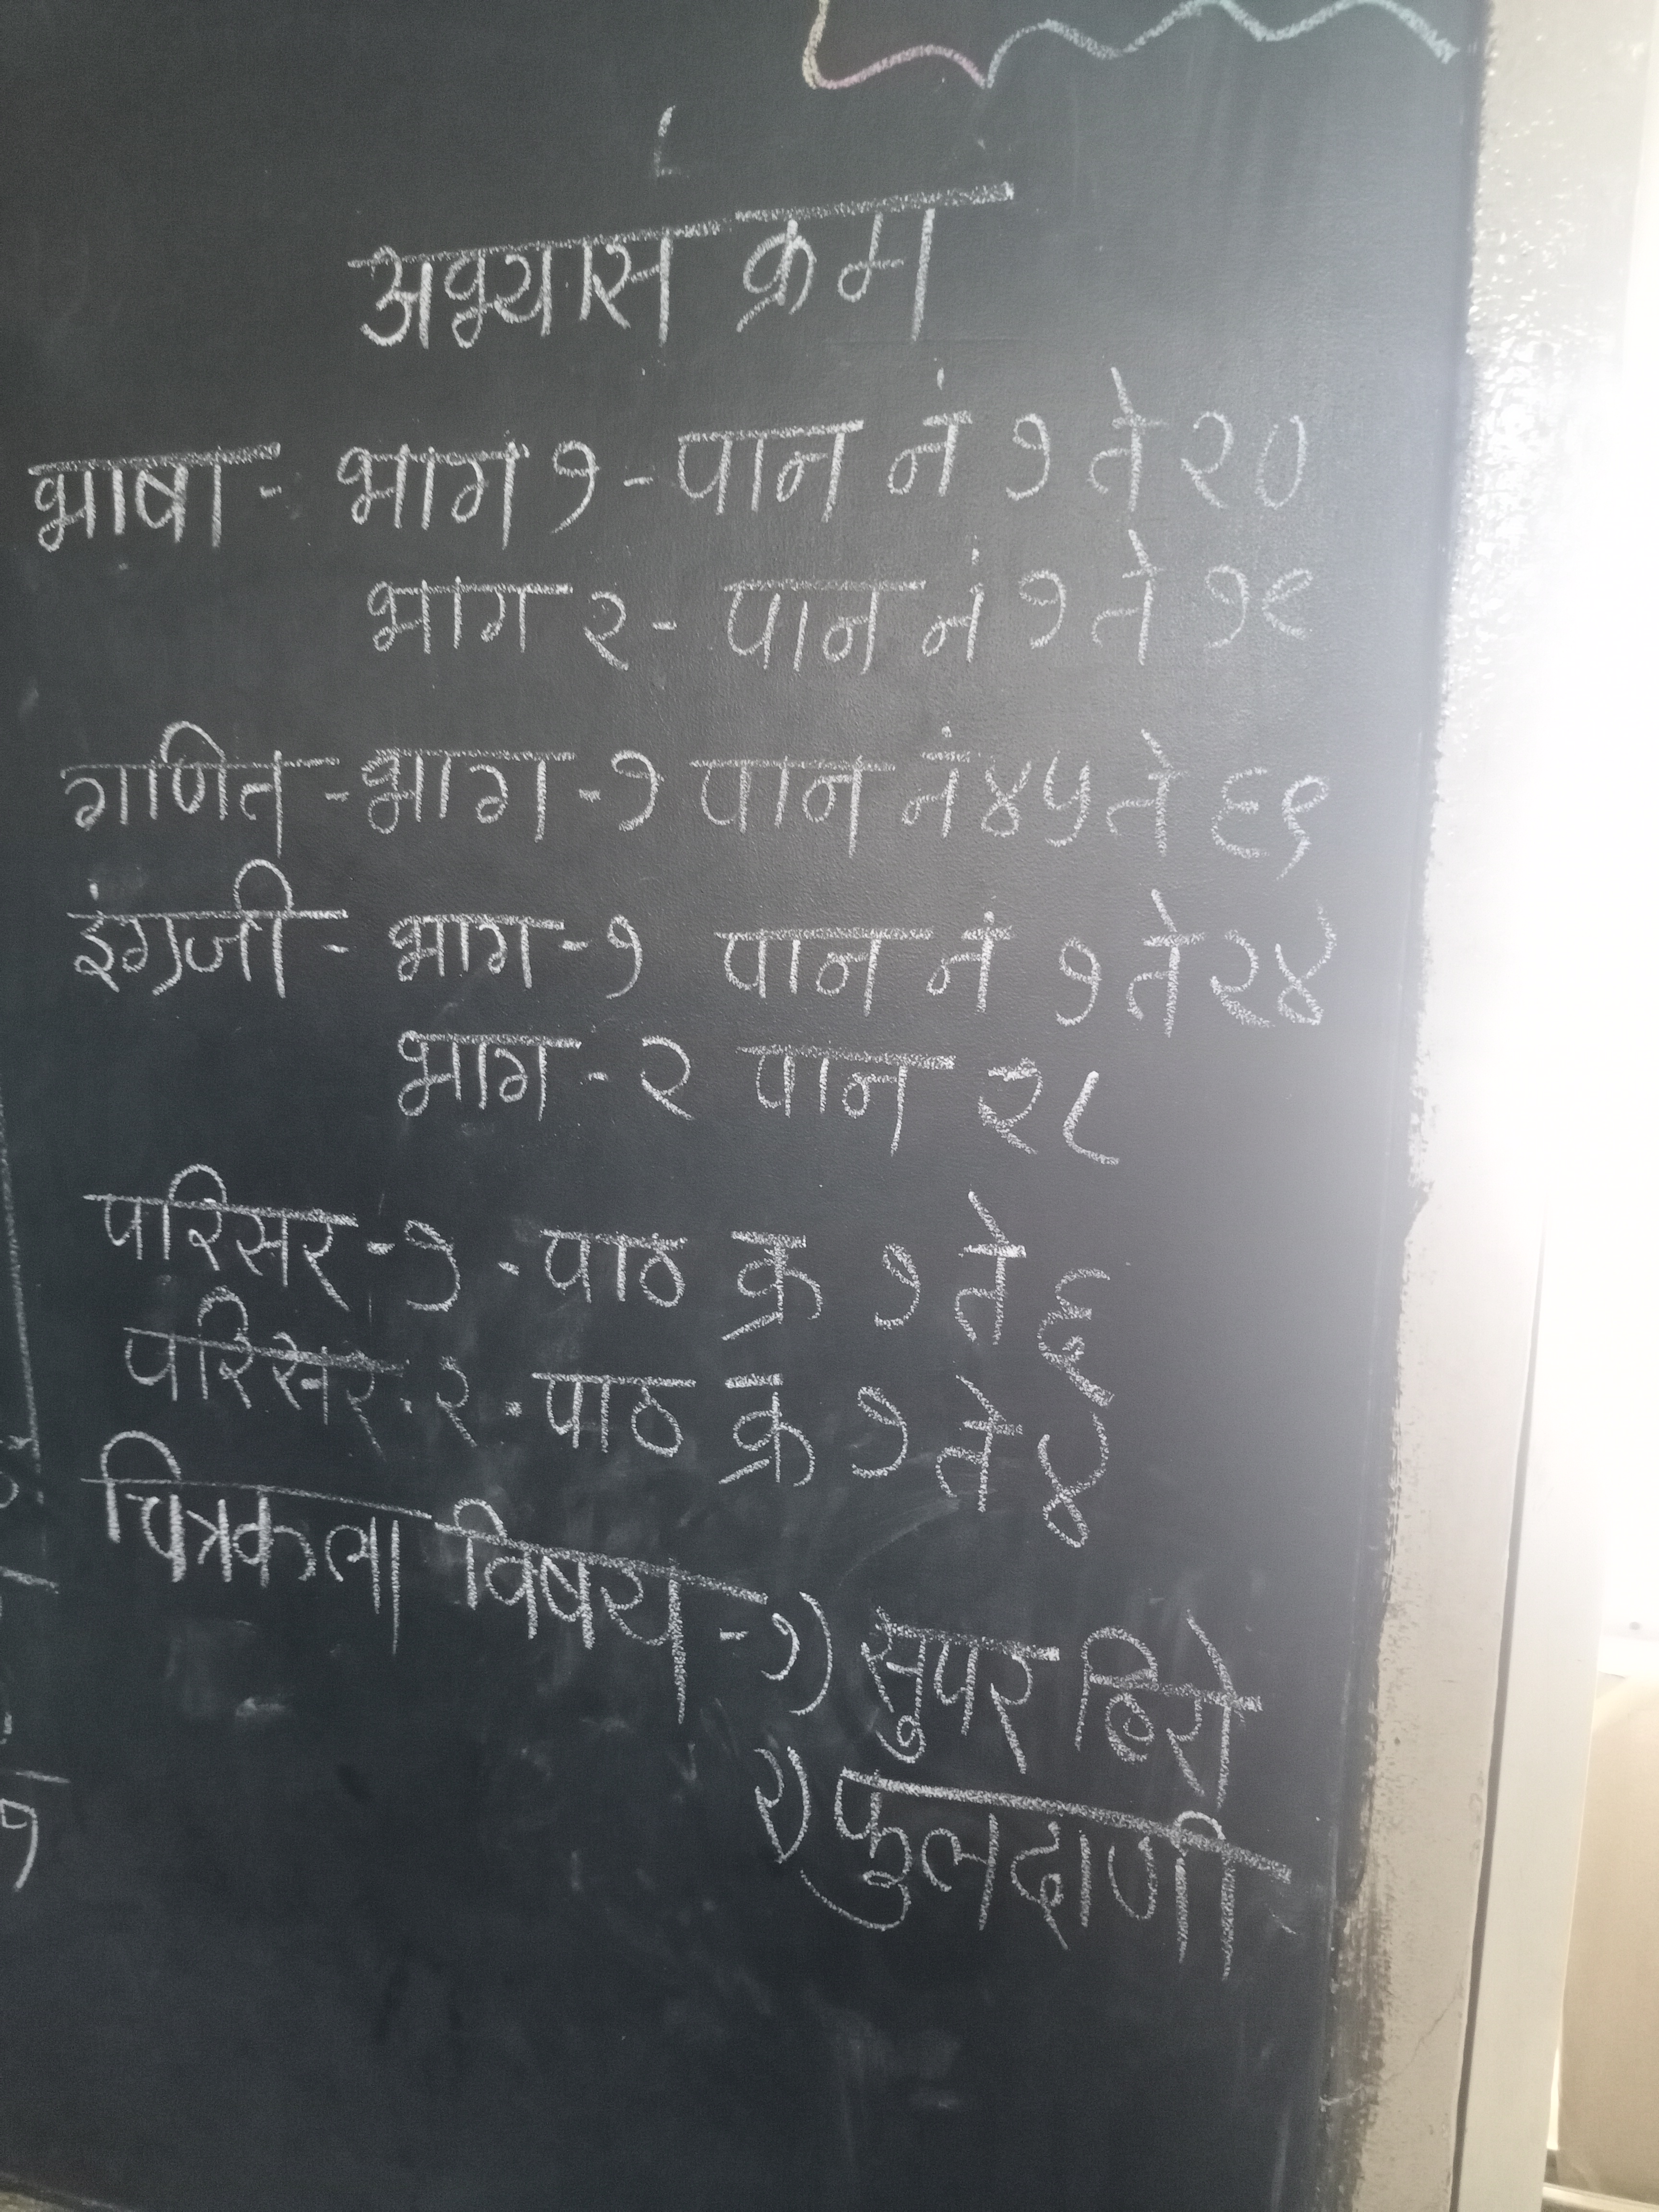 अभ्यास क्रम
भाषा - भाग १ - पान नं १ ते २०
भाग २ - पान नं १ ते १९
गणित - भाग - १ पान नं ४५ ते ६९
इंग्रजी - भाग - १ पान नं १ ते २४
भाग - २ पान २८
परिसर - १ - पाठ क्र १ ते ६
परिसर - २ - पाठ क्र १ ते ४
चित्रकला विषय - १) सुपर हिरो
२) फुलदाणी